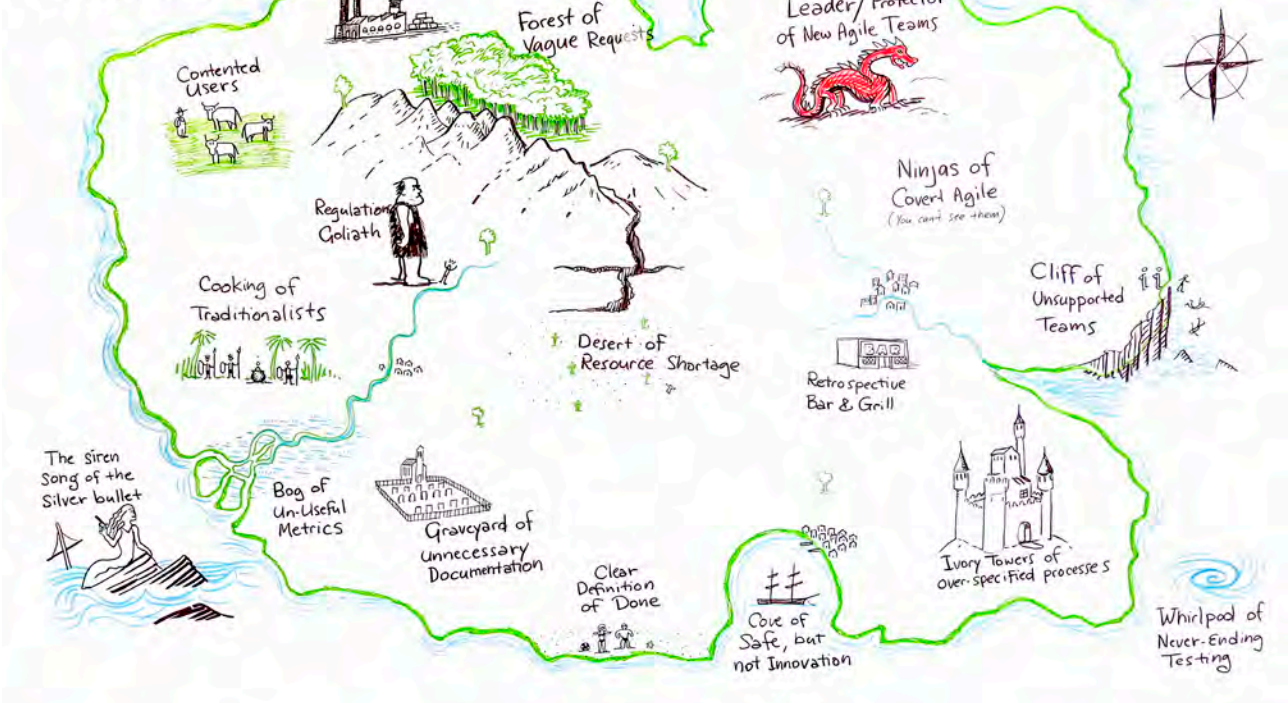 Forest of
Vague Requests
Leader/Protector
of New Agile Teams
Contented
Users
Ninjas of
Covert Agile
(You can't see them)
Regulation
Goliath
Cliff of
Unsupported
Teams
Cooking of
Traditionalists
Desert of
Resource Shortage
BAR
Retrospective
Bar & Grill
The Siren
Song of the
Silver bullet
Bog of
Un-Useful
Metrics
Graveyard of
unnecessary
Documentation
Clear
Definition
of Done
Cove of
Safe, but
not Innovation
Ivory Towers of
over-specified processes
Whirlpool of
Never-Ending
Testing